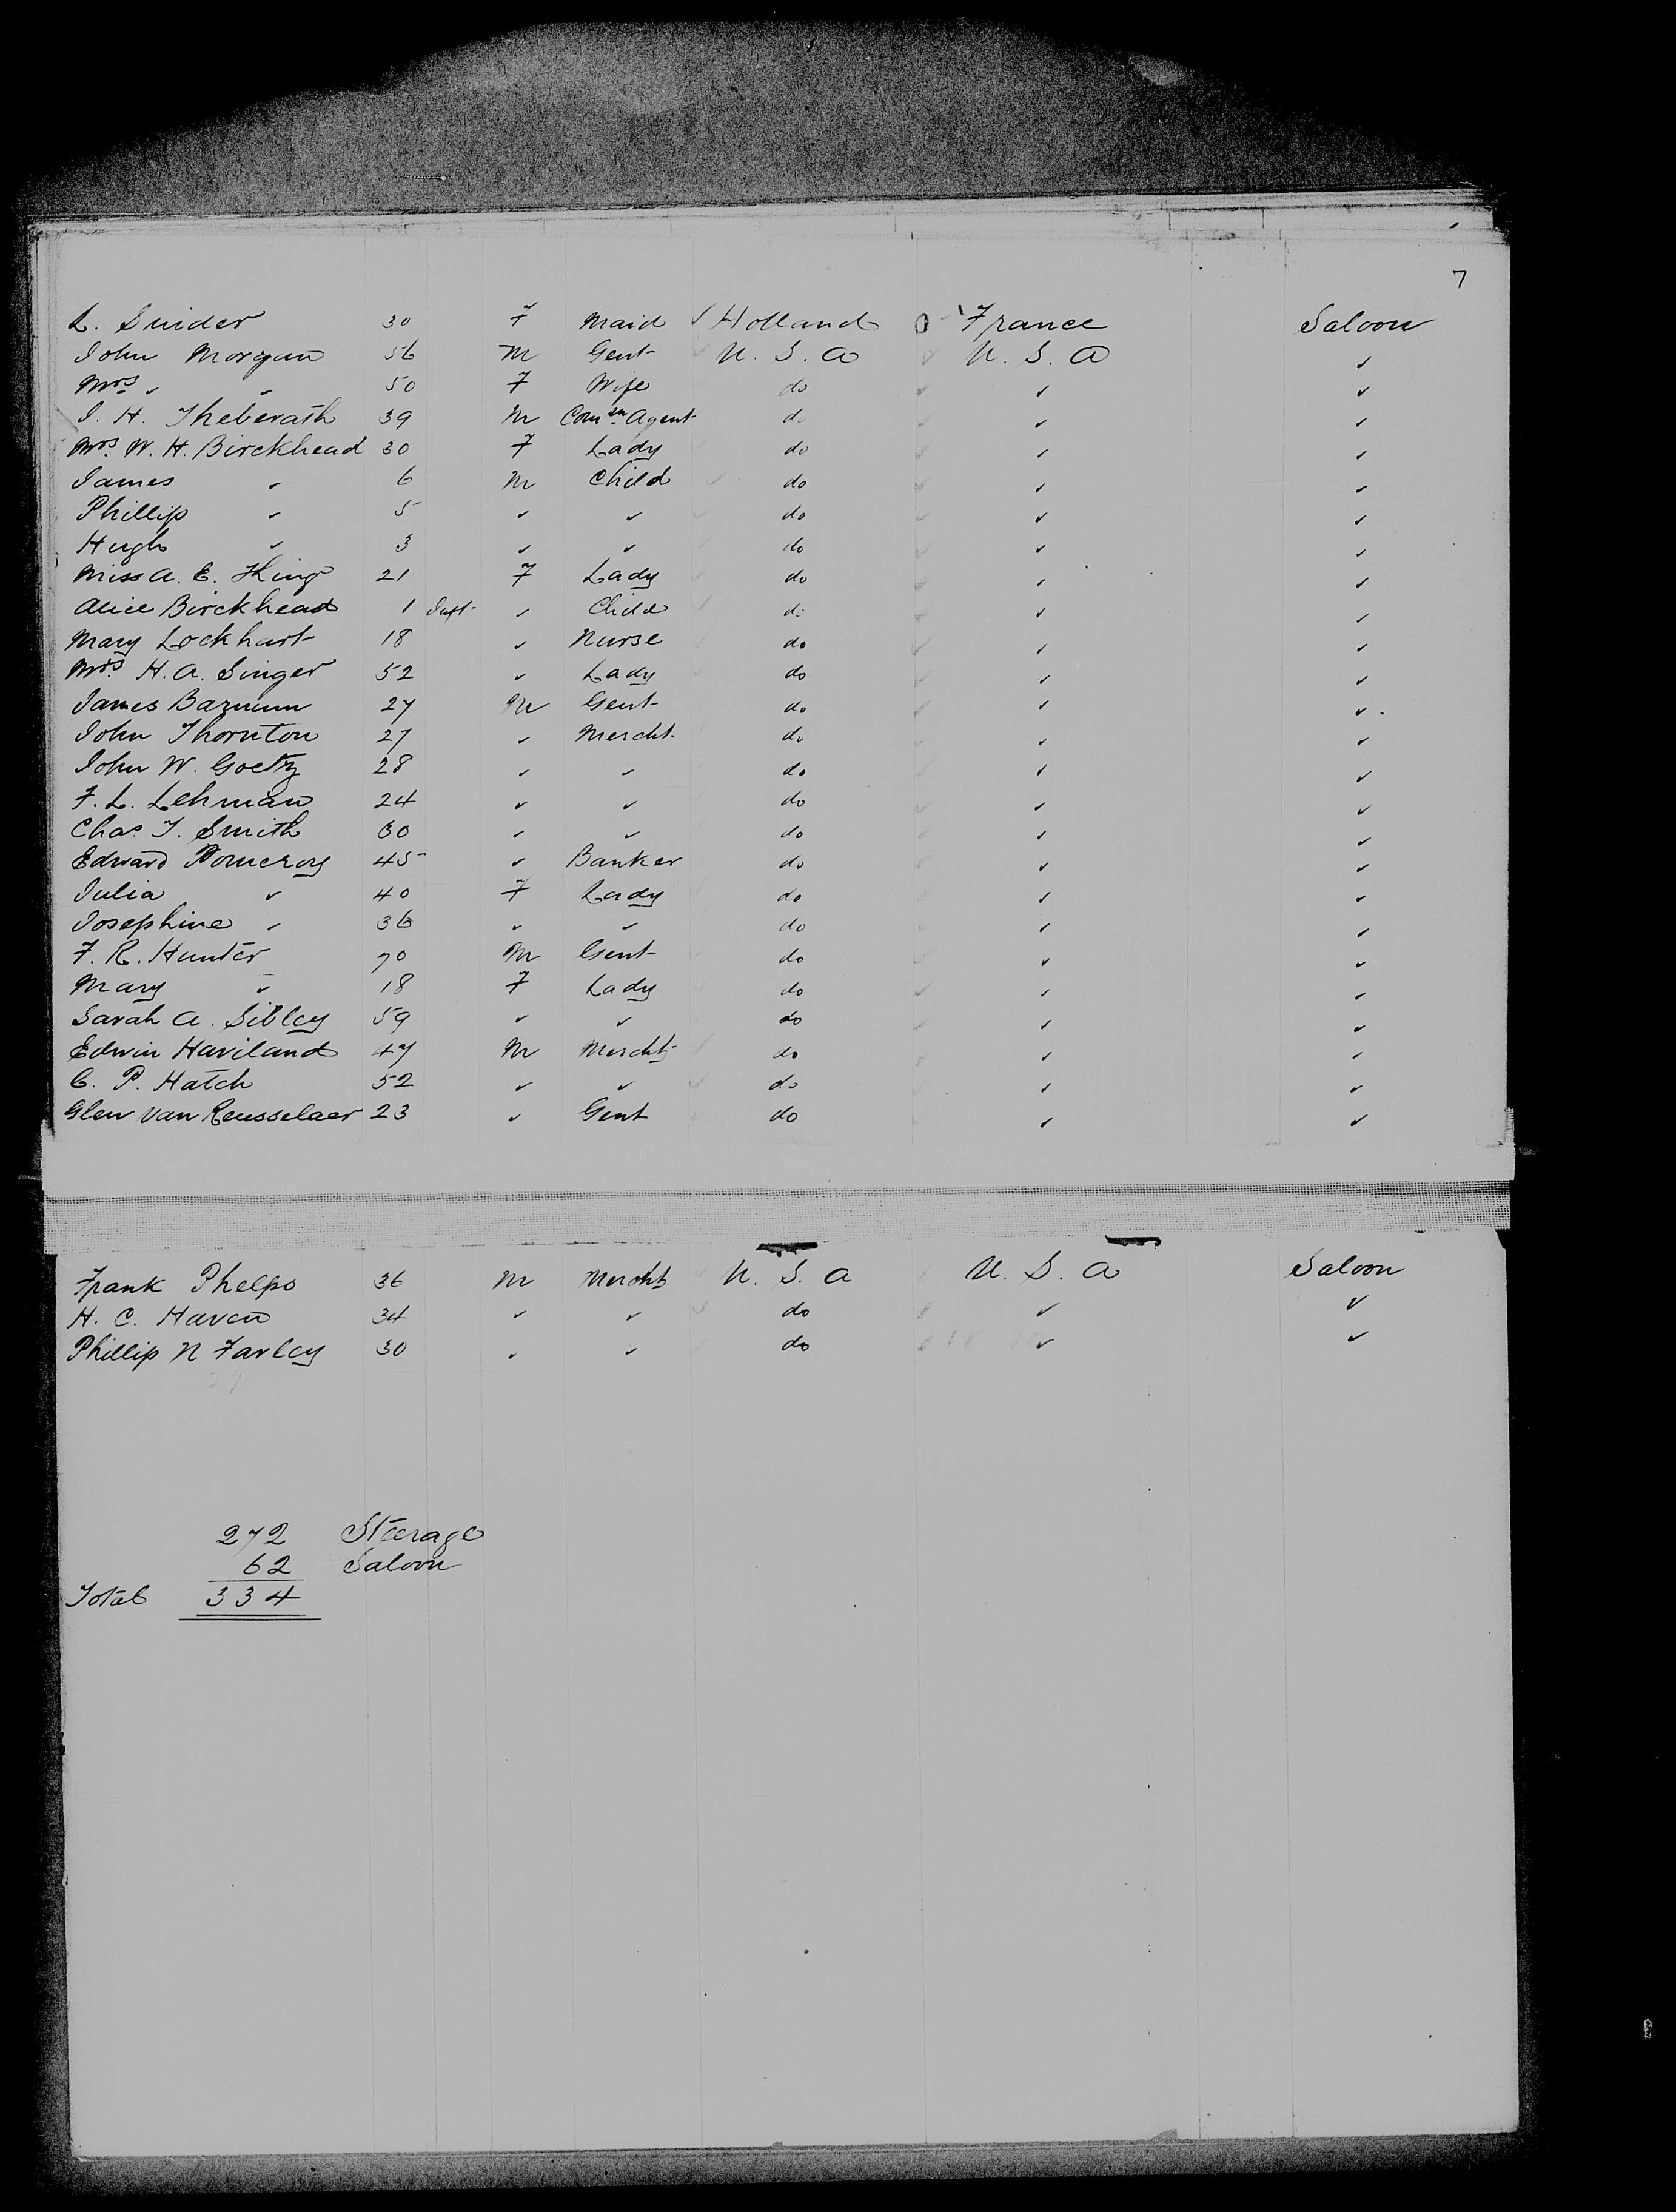 7
L. Snider 30 F Maid ✓ Holland 0 France Saloon
John Morgan 56 M Gent U. S. A U. S. A ✓
Mrs ✓ ✓ 50 F Wife do ✓ ✓
J. H. Theberath 39 M Comsn Agent do ✓ ✓
Mrs. W. H. Birckhead 30 F Lady do ✓ ✓
James ✓ 6 M Child do ✓ ✓
Phillip ✓ 5 ✓ ✓ do ✓ ✓
Hugh ✓ 3 ✓ ✓ do ✓ ✓
Miss A. E. King 21 F Lady do ✓ ✓
Alice Birckhead 1 Inft ✓ Child do ✓ ✓
Mary Lockhart 18 ✓ Nurse do ✓ ✓
Mrs. H. A. Singer 52 ✓ Lady do ✓ ✓
James Barnum 27 M Gent do ✓ ✓
John Thornton 27 ✓ Mercht do ✓ ✓
John W. Goetz 28 ✓ ✓ do ✓ ✓
F. L. Lehman 24 ✓ ✓ do ✓ ✓
Chas. T. Smith 30 ✓ ✓ do ✓ ✓
Edward Pomeroy 45 ✓ Banker do ✓ ✓
Julia ✓ 40 F Lady do ✓ ✓
Josephine ✓ 36 ✓ ✓ do ✓ ✓
F. R. Hunter 70 M Gent do ✓ ✓
Mary ✓ 18 F Lady do ✓ ✓
Sarah A. Sibley 59 ✓ ✓ do ✓ ✓
Edwin Haviland 47 M Mercht do ✓ ✓
C. P. Hatch 52 ✓ ✓ do ✓ ✓
Glen Van Rensselaer 23 ✓ Gent do ✓ ✓
Frank Phelps 36 M Mercht U. S. A U. S. A Saloon
H. C. Haven 34 ✓ ✓ do ✓ ✓
Phillip N Farley 30 ✓ ✓ do ✓ ✓
29
272 Steerage
62 Saloon
Total 334